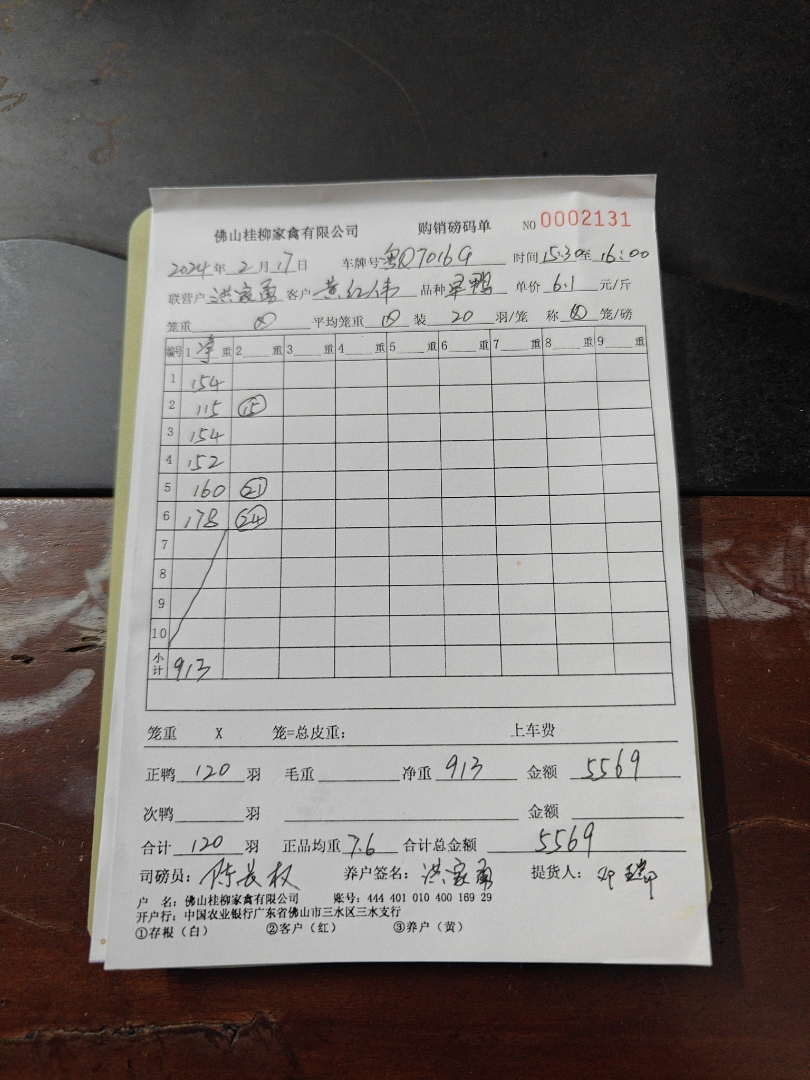 佛山桂柳家禽有限公司 购销磅码单 NO 0002131
2024年2月17日 车牌号粤Q7016G 时间15:30至16:00
联营户洪家勇 客户黄红伟 品种 单价6.1元/斤
笼重 平均笼重 装20羽/笼 称 笼/磅
编号 1净重 2重 3重 4重 5重 6重 7重 8重 9重
1 154
2 115 15
3 154
4 152
5 160 21
6 178 24
7
8
9
10
小计 913
笼重 X 笼=总皮重: 上车费
正鸭120羽 毛重 净重913 金额5569
次鸭 羽 金额
合计120羽 正品均重7.6 合计总金额5569
司磅员:陈长权 养户签名:洪家勇 提货人:
户 名:佛山桂柳家禽有限公司 账号:444 401 010 400 169 29
开户行:中国农业银行广东省佛山市三水区三水支行
①存根(白) ②客户(红) ③养户(黄)